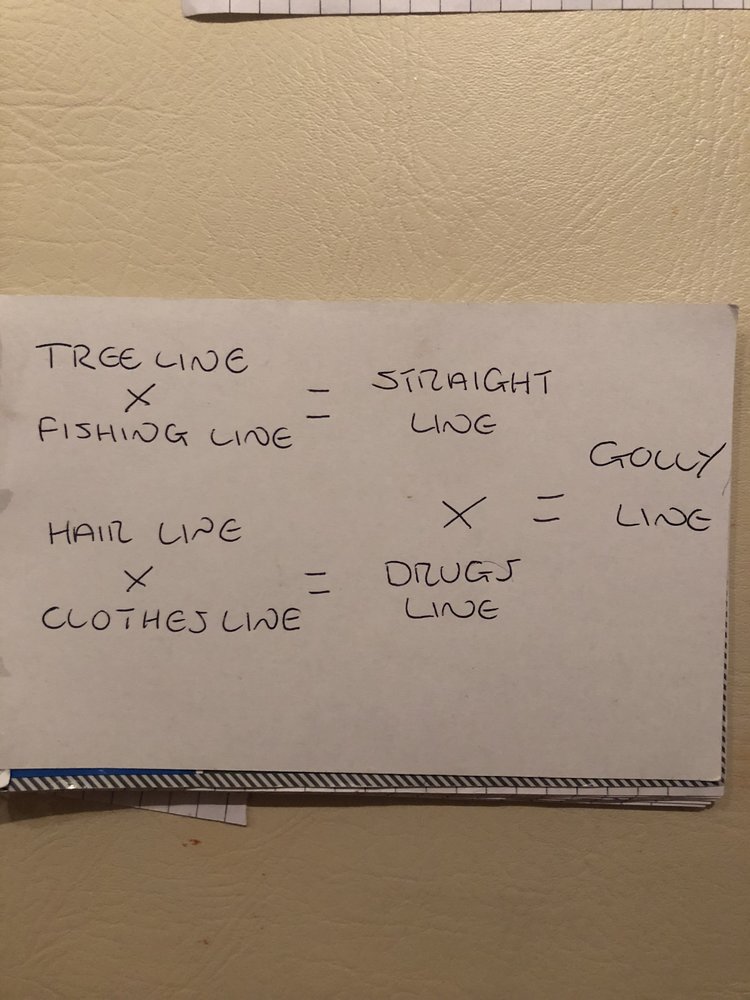 TREE LINE
X
FISHING LINE
=
STRAIGHT
LINE
HAIR LINE
X
CLOTHES LINE
=
DRUGS
LINE
X
=
GOLLY
LINE